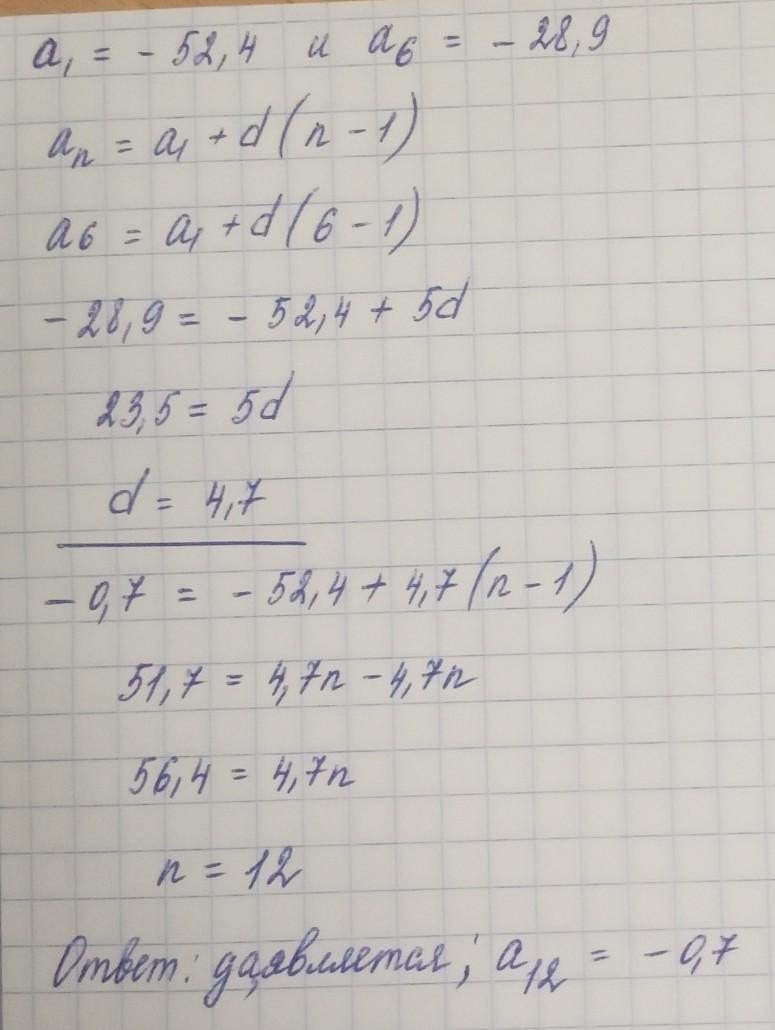 a₁ = - 52,4 и a₆ = - 28,9
aₙ = a₁ + d(n - 1)
a6 = a₁ + d(6 - 1)
- 28,9 = - 52,4 + 5d
23,5 = 5d
d = 4,7
- 0,7 = - 52,4 + 4,7(n - 1)
51,7 = 4,7n - 4,7n
56,4 = 4,7n
n = 12
Ответ: да,является; a₁₂ = - 0,7